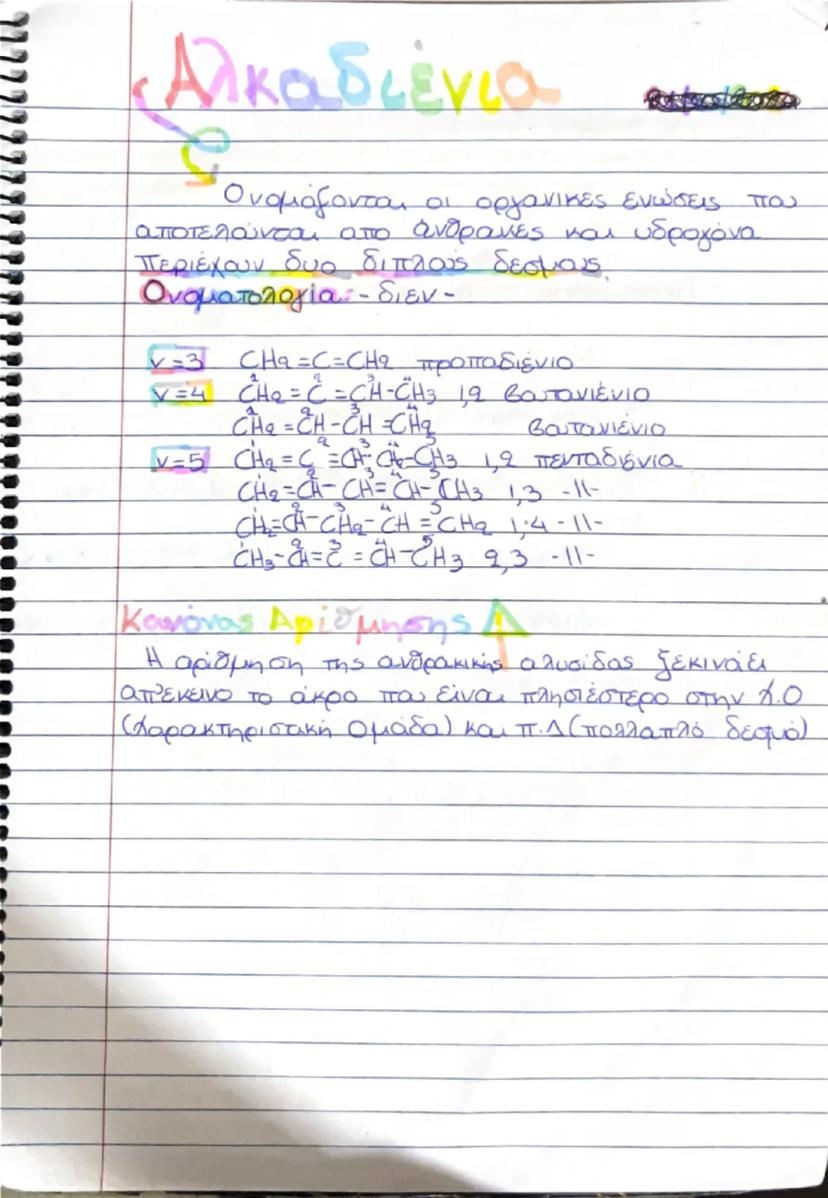 Αλκαδιένια
Ονομάζονται οι οργανικές ενώσεις που
αποτελούνται απο άνθρακες και υδρογόνα
περιέχουν δυο διπλούς δεσμούς.
Ονοματολογία: -διεν-
ν=3 CH2=C=CH2 προπαδιένιο
ν=4 CH2=C=CH-CH3 1,2 βουτανιένιο
CH2=CH-CH=CH2 βουτανιένιο
ν=5 CH2=C=CH-CH2-CH3 1,2 πενταδιένια
CH2=CH-CH=CH-CH3 1,3 -||-
CH2=CH-CH2-CH=CH2 1,4 -||-
CH3-CH=C=CH-CH3 2,3 -||-
Κανόνας Αρίθμησης
Η αρίθμηση της ανθρακικής αλυσίδας ξεκινάει
απ'εκεινο το άκρο που είναι πλησιέστερο στην Χ.Ο
(Χαρακτηριστική Ομάδα) και π.Δ (πολλαπλό δεσμό)